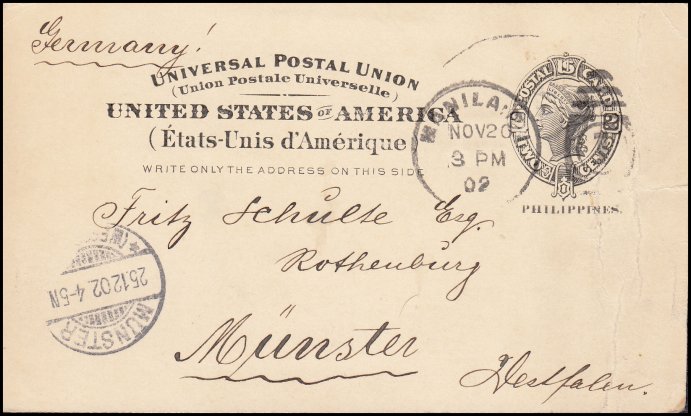 Germany!
UNIVERSAL POSTAL UNION
(Union Postale Universelle)
UNITED STATES OF AMERICA
(États-Unis d'Amérique
WRITE ONLY THE ADDRESS ON THIS SIDE
MANILA
NOV 20
3 PM
02
POSTAL CARD
TWO CENTS
PHILIPPINES.
Fritz Schulte Esq.
Rothenburg
Münster
Westfalen.
MÜNSTER
25.12.02. 4-5N